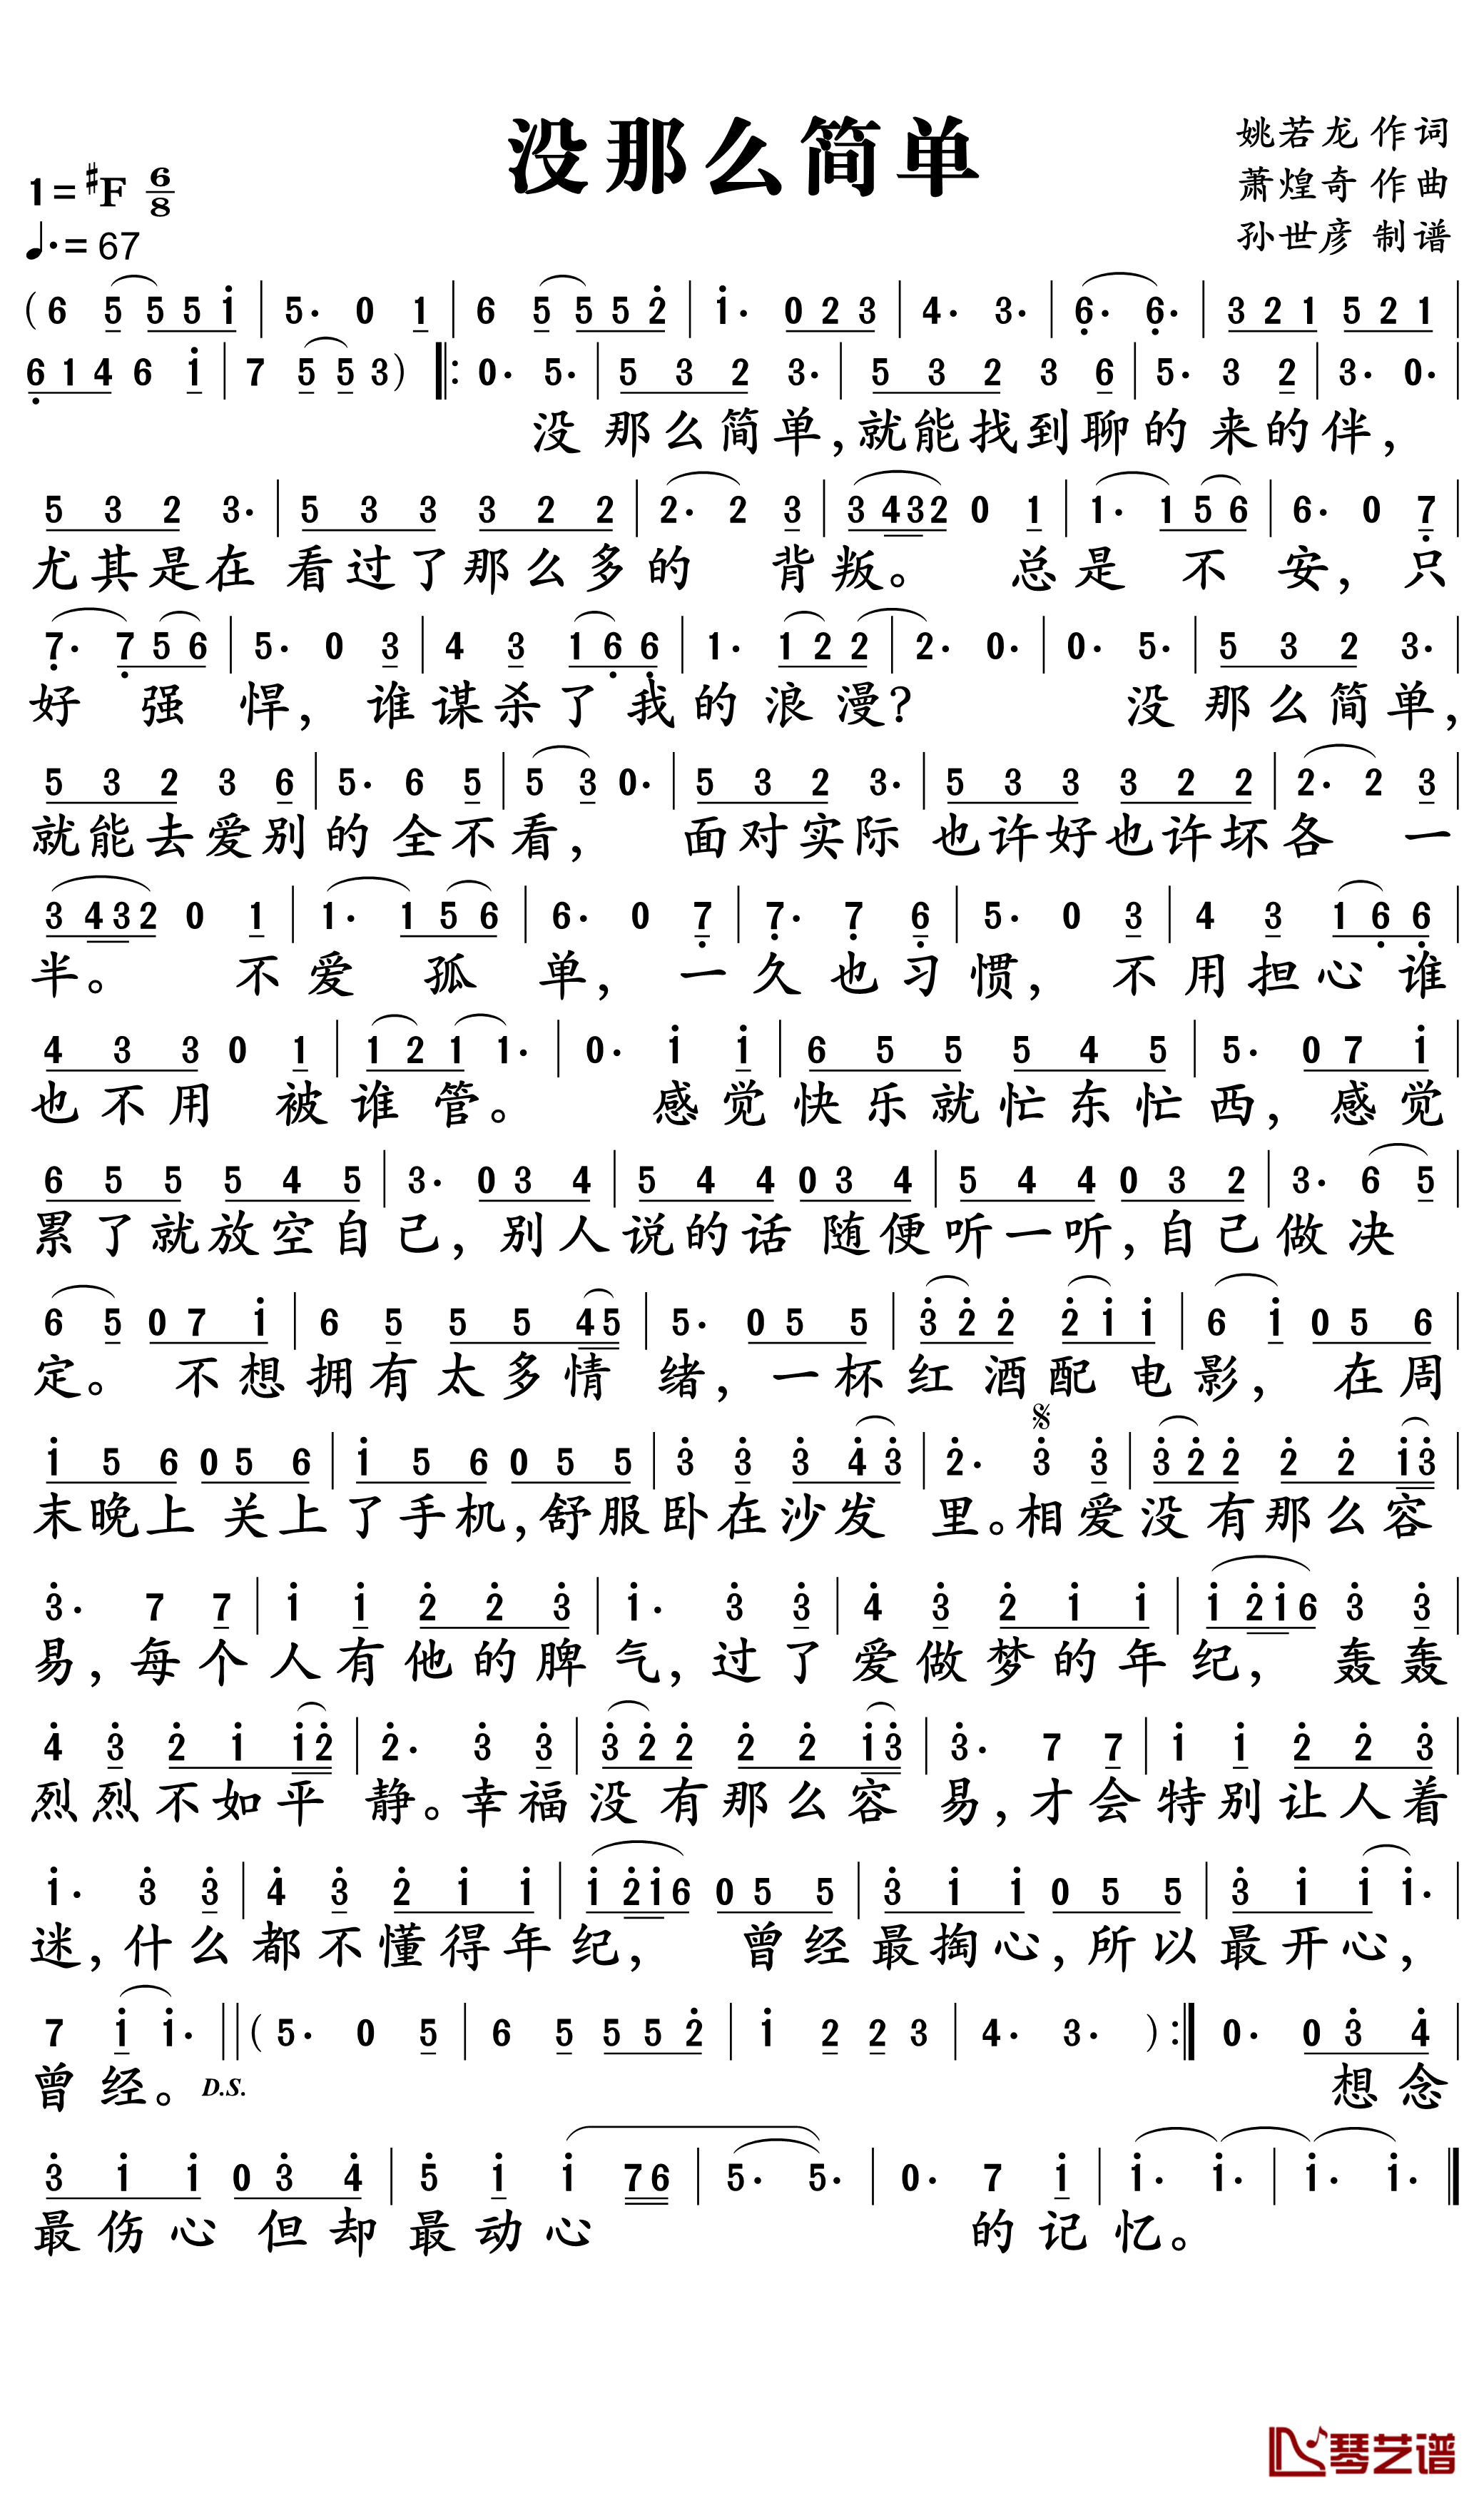 没那么简单
姚若龙 作词
萧煌奇 作曲
孙世彦 制谱
1=♯F 6/8
♩.=67
( 6 5 5 5 i̇ | 5· 0 1 | 6 5 5 5 2̇ | i̇· 0 2 3 | 4· 3· | 6̣· 6̣· | 3 2 1 5 2 1 |
6̣ 1 4 6 i̇ | 7 5 5 3 ) ‖: 0· 5· | 5 3 2 3· | 5 3 2 3 6 | 5· 3 2 | 3· 0· |
没 那么简单,就能找到聊的来的伴,
5 3 2 3· | 5 3 3 3 2 2 | 2· 2 3 | 3 4 3 2 0 1 | 1· 1 5 6 | 6· 0 7̣ |
尤其是在 看过了那么多的 背叛。 总是 不 安, 只
7̣· 7̣ 5 6 | 5· 0 3 | 4 3 1 6̣ 6̣ | 1· 1 2 2 | 2· 0· | 0· 5· | 5 3 2 3· |
好 强 悍, 谁谋杀了我的浪漫? 没 那么简单,
5 3 2 3 6 | 5· 6 5 | 5 3 0· | 5 3 2 3· | 5 3 3 3 2 2 | 2· 2 3 |
就能去爱别的全不看, 面对实际 也许好也许坏各 一
3 4 3 2 0 1 | 1· 1 5 6 | 6· 0 7̣ | 7̣· 7̣ 6̣ | 5· 0 3 | 4 3 1 6̣ 6̣ |
半。 不爱 孤 单, 一久也习惯, 不用担心谁
4 3 3 0 1 | 1 2 1 1· | 0· i̇ i̇ | 6 5 5 5 4 5 | 5· 0 7 i̇ |
也不用 被谁管。 感觉快乐就忙东忙西, 感觉
6 5 5 5 4 5 | 3· 0 3 4 | 5 4 4 0 3 4 | 5 4 4 0 3 2 | 3· 6 5 |
累了就放空自己, 别人说的话随便听一听,自己做决
6 5 0 7 i̇ | 6 5 5 5 4 5 | 5· 0 5 5 | 3̇ 2̇ 2̇ 2̇ i̇ i̇ | 6 i̇ 0 5 6 |
定。 不想拥有太多情 绪,一杯红酒配电影, 在周
i̇ 5 6 0 5 6 | i̇ 5 6 0 5 5 | 3̇ 3̇ 3̇ 4̇ 3̇ | 2̇· 3̇ 3̇ | 3̇ 2̇ 2̇ 2̇ 2̇ i̇ 3̇ |
末晚上关上了手机,舒服卧在沙发 里。相爱没有那么容
3̇· 7 7 | i̇ i̇ 2̇ 2̇ 3̇ | i̇· 3̇ 3̇ | 4̇ 3̇ 2̇ i̇ i̇ | i̇ 2̇ i̇ 6 3̇ 3̇ |
易, 每个人有他的脾气, 过了爱做梦的年纪, 轰轰
4̇ 3̇ 2̇ i̇ i̇ 2̇ | 2̇· 3̇ 3̇ | 3̇ 2̇ 2̇ 2̇ 2̇ i̇ 3̇ | 3̇· 7 7 | i̇ i̇ 2̇ 2̇ 3̇ |
烈烈不如平 静。幸福没有那么容 易,才会特别让人着
i̇· 3̇ 3̇ | 4̇ 3̇ 2̇ i̇ i̇ | i̇ 2̇ i̇ 6 0 5 5 | 3̇ i̇ i̇ 0 5 5 | 3̇ i̇ i̇ i̇· |
迷,什么都不懂得年纪, 曾经最掏心,所以最开心,
7 i̇ i̇· ‖ ( 5· 0 5 | 6 5 5 5 2̇ | i̇ 2 2 3 | 4· 3· ) :‖ 0· 0 3̇ 4̇ |
曾经。D.S. 想念
3̇ i̇ i̇ 0 3̇ 4̇ | 5̇ i̇ i̇ 7 6 | 5· 5· | 0· 7 i̇ | i̇· i̇· | i̇· i̇· ‖
最伤心但却最动心 的记忆。
琴艺谱